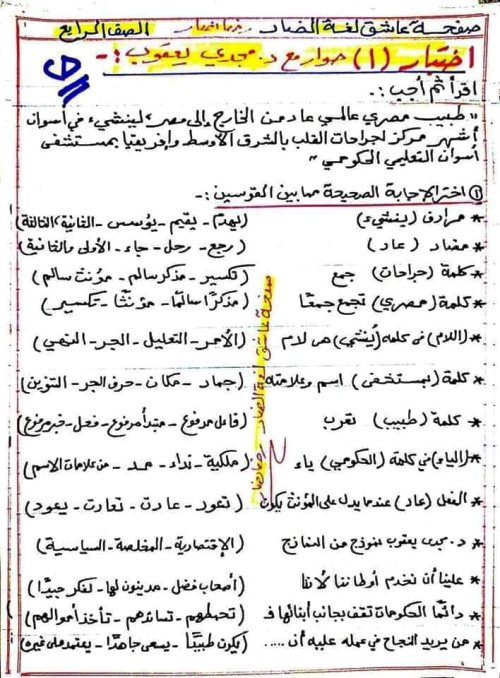 صفحة عاشق لغة الضاد الصف الرابع
اختبار (١) حوار مع د. مجدي يعقوب :-
اقرأ ثم أجب :.
" طبيب مصري عالمي عاد من الخارج إلى مصر، لينشيء في أسوان
أشهر مركز لجراحات القلب بالشرق الأوسط وإفريقيا بمستشفى
أسوان التعليمي الحكومي "
① اختر الإجابة الصحيحة مما بين القوسين :-
* مرادف (ينشيء) (يهدم - يقيم - يؤسس - الثانية والثالثة)
* مضاد (عاد) (رجع - رحل - جاء - الأولى والثانية)
* كلمة (جراحات) جمع (تكسير - مذكر سالم - مؤنث سالم)
* كلمة (مصري) تجمع جمعًا (مذكرًا سالمًا - مؤنثًا - تكسير)
* (اللام) في كلمة (لينشيء) هي لام (الأمر - التعليل - الجر - النهي)
* كلمة (بمستشفى) اسم وعلامته (جماد - مكان - حرف الجر - التنوين)
* كلمة (طبيب) تعرب (فاعل مرفوع - مبتدأ مرفوع - فعل - خبر مرفوع)
* (الياء) في كلمة (الحكومي) ياء (ملكية - نداء - مد - من علامات الاسم)
* الفعل (عاد) عندما يدل على المؤنث يكون (تعود - عادت - تعادت - يعود)
* د. مجدى يعقوب نموذج من النماذج (الإقتصادية - المخلصة - السياسية)
* علينا أن نخدم أوطاننا لأننا (أصحاب فضل - مدينون لها - نفكر جيدًا)
* دائمًا الحكومات تقف بجانب أبنائها فـ (تحملهم - تساندهم - تأخذ أموالهم)
* من يريد النجاح في عمله عليه أن .... (يكون طبيبًا - يسعى جاهدًا - يعتمد على غيره)
صفحة عاشق لغة الضاد